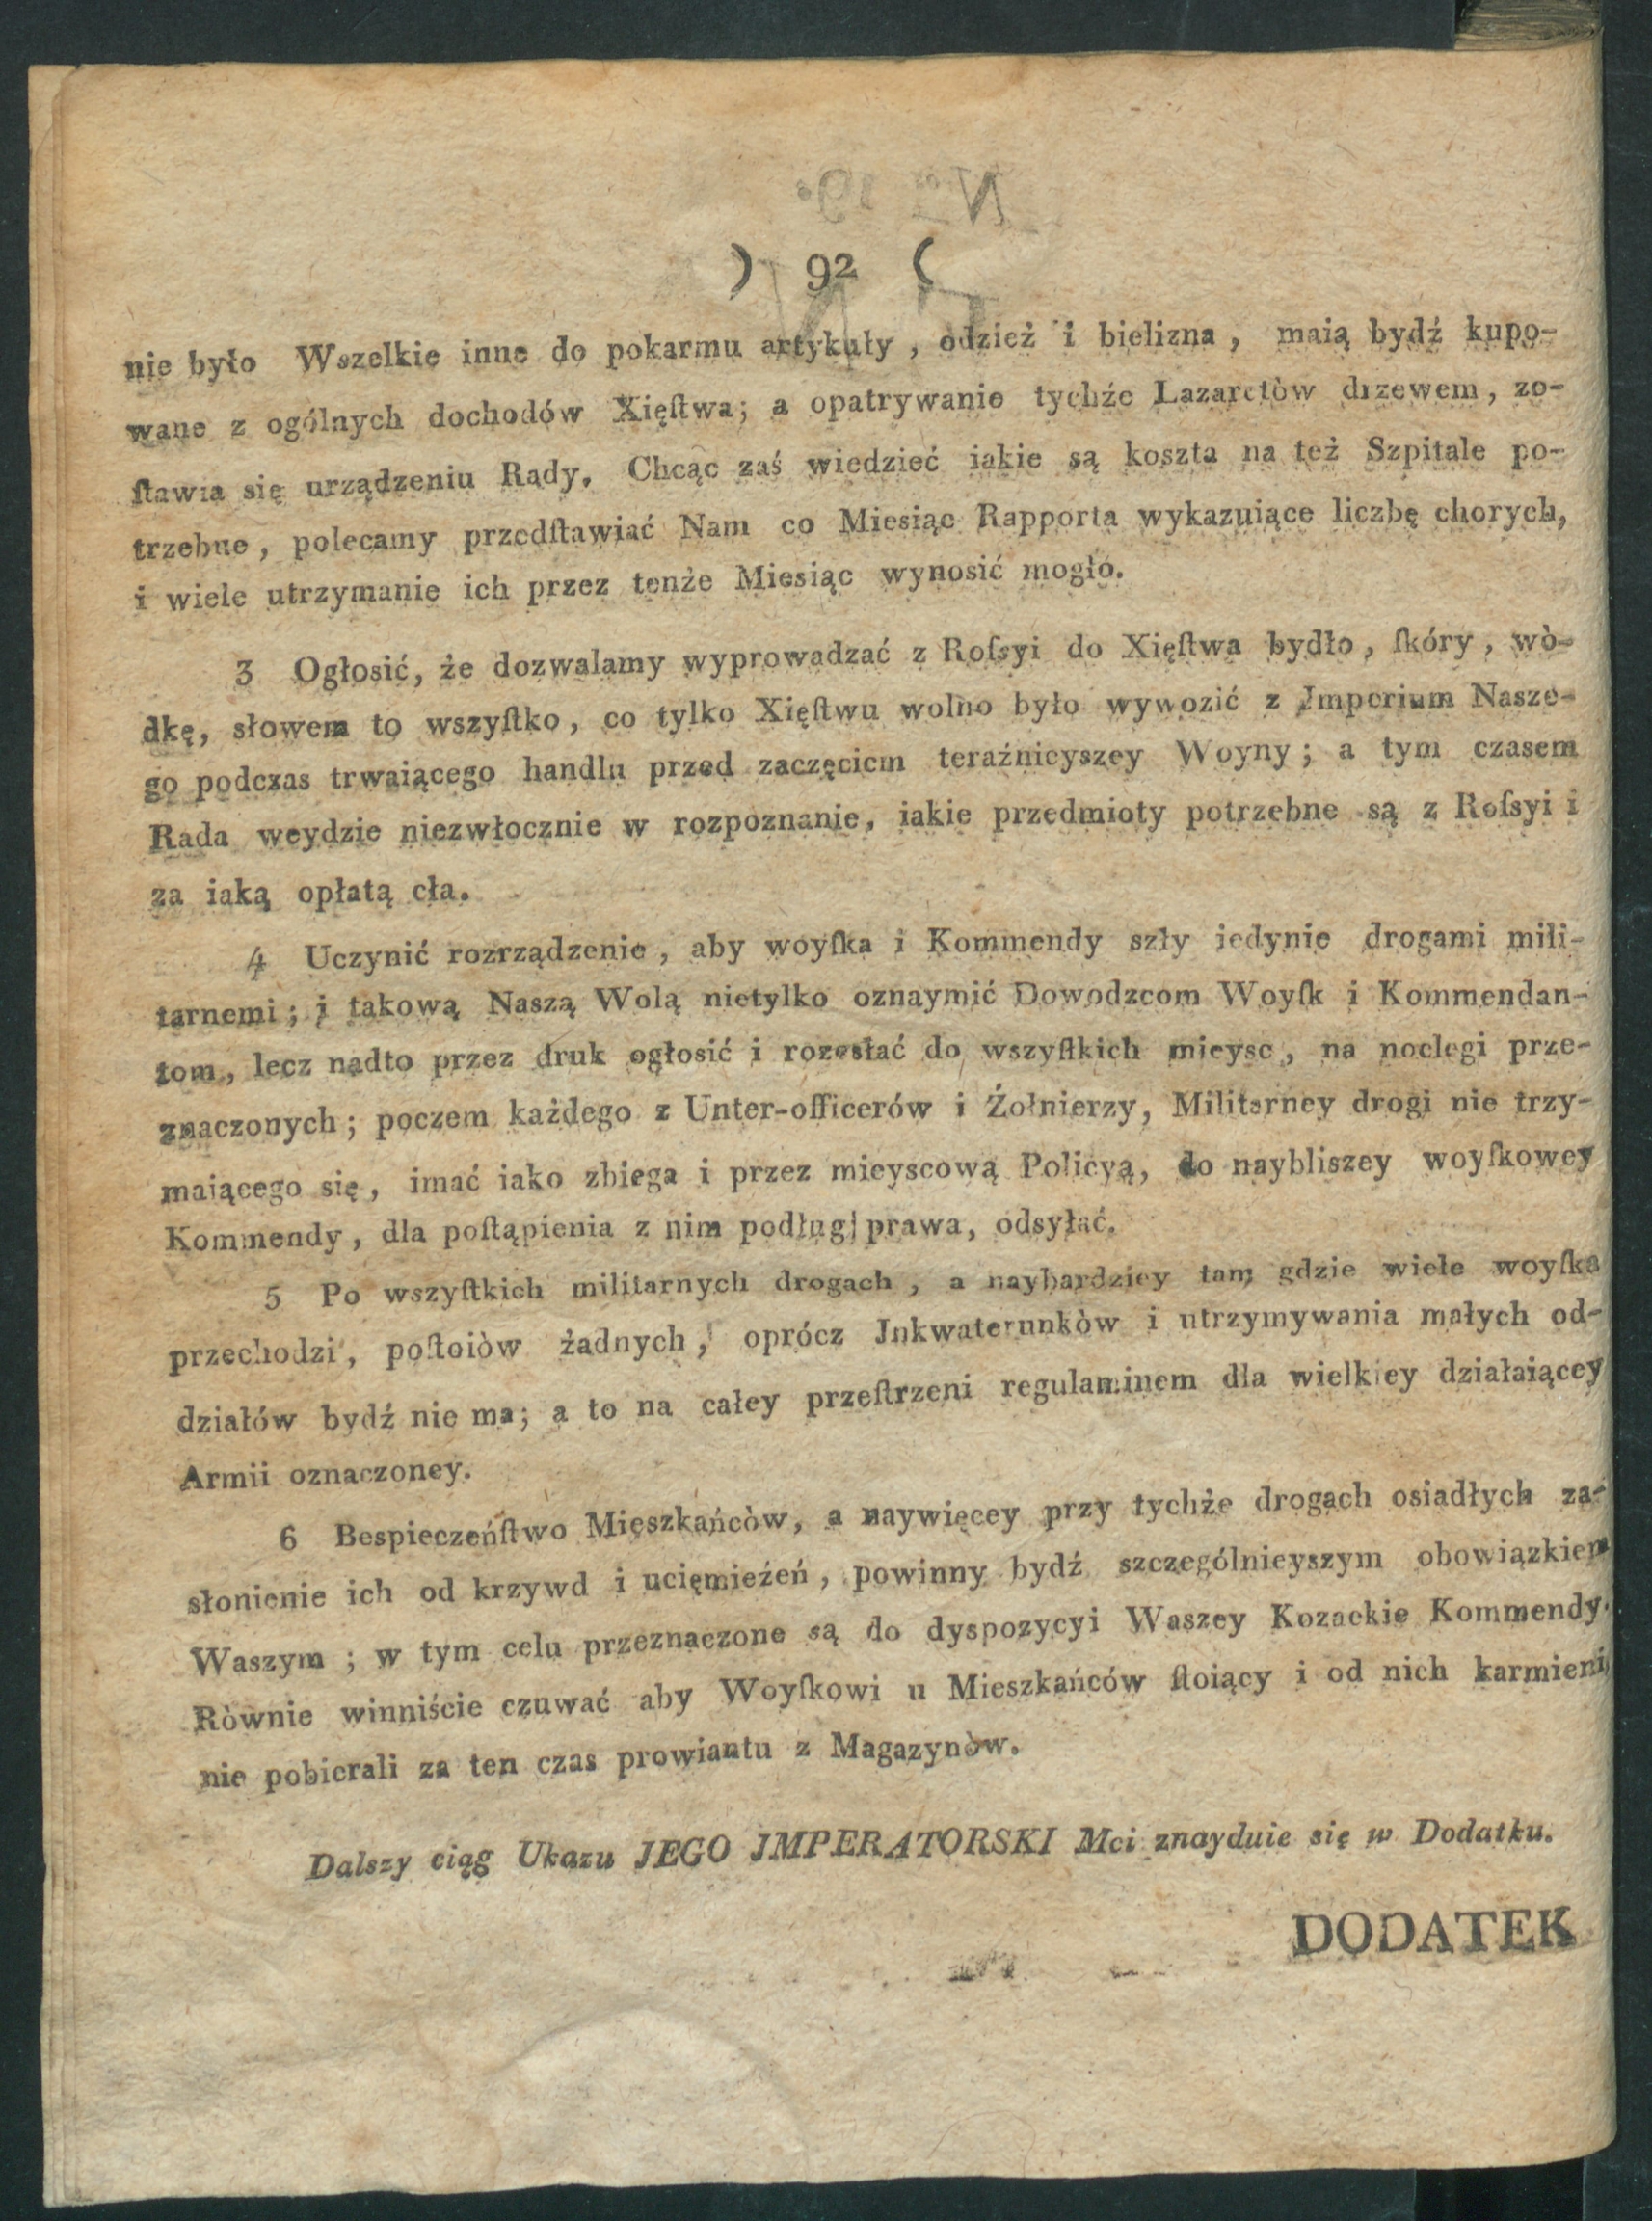 ) 92 (
nie było Wszelkie inne do pokarmu artykuły , odzież i bielizna , maią bydź kupo-
wane z ogólnych dochodów Xięſtwa; a opatrywanie tychźe Lazaretòw drzewem, zo-
ſtawia się urządzeniu Rady. Chcąc zaś wiedzieć iakie są koszta na też Szpitale po-
trzebne, polecamy przedſtawiać Nam co Miesiąc Rapporta wykazuiące liczbę chorych,
i wiele utrzymanie ich przez tenże Miesiąc wynosić mogło.
3 Ogłosić, że dozwalamy wyprowadzać z Roſsyi do Xięſtwa bydło, ſkóry, wò-
dkę, słowem to wszyſtko, co tylko Xięſtwu wolno było wywozić z Jmperium Nasze-
go podczas trwaiącego handlu przed zaczęciem teraźnieyszey Woyny; a tym czasem
Rada weydzie niezwłocznie w rozpoznanie, iakie przedmioty potrzebne są z Roſsyi i
za iaką opłatą cła.
4 Uczynić rozrządzenie, aby woyſka i Kommendy szły iedynie drogami mili-
tarnemi; i takową Naszą Wolą nietylko oznaymić Dowodzcom Woyſk i Kommendan-
tom, lecz nadto przez druk ogłosić i rozesłać do wszyſtkich mieysc, na noclegi prze-
znaczonych; poczem każdego z Unter-officerów i Źołnierzy, Militarney drogi nie trzy-
maiącego się, imać iako zbiega i przez mieyscową Policyą, do naybliszey woyſkowey
Kommendy, dla poſtąpienia z nim podług prawa, odsyłać.
5 Po wszyſtkich militarnych drogach, a naybardziey tam gdzie wiele woyſka
przechodzi, poſtoiòw żadnych, oprócz Jnkwaterunkòw i utrzymywania małych od-
działów bydź nie ma; a to na całey przeſtrzeni regulaminem dla wielkiey działaiącey
Armii oznaczoney.
6 Bespieczeńſtwo Mieszkańcòw, a naywięcey przy tychże drogach osiadłych za-
słonienie ich od krzywd i ucięmieżeń, powinny bydź szczególnieyszym obowiązkiem
Waszym ; w tym celu przeznaczone są do dyspozycyi Waszey Kozackie Kommendy.
Ròwnie winniście czuwać aby Woyſkowi u Mieszkańców ſtoiący i od nich karmieni
nie pobierali za ten czas prowiantu z Magazynòw.
Dalszy ciąg Ukazu JEGO JMPERATORSKI Mci znayduie się w Dodatku.
DODATEK